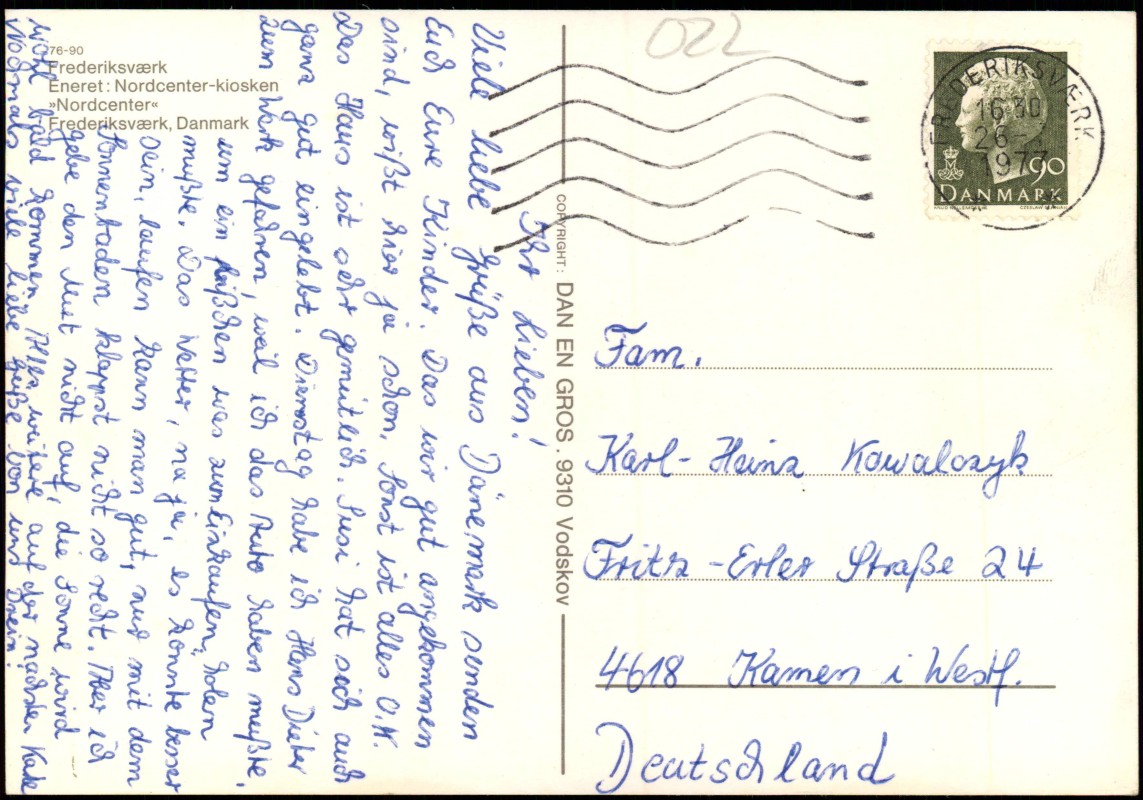 76-90
Frederiksværk
Eneret: Nordcenter-kiosken
»Nordcenter«
Frederiksværk, Danmark
Ihr Lieben!
Viele liebe Grüße aus Dänemark senden
Euch Eure Kinder. Das wir gut angekommen
sind, wißt hier ja schon. Sonst ist alles O.K.
Das Haus ist sehr gemütlich. Susi hat sich auch
ganz gut eingelebt. Dienstag habe ich Hans Dieter
zum Werk gefahren, weil ich das Auto haben mußte,
um ein bißchen was zum Einkaufen, holen
mußte. Das Wetter, na ja, es konnte besser
sein, laufen kann man gut, nur mit dem
Sonnenbaden klappst nicht so recht. Aber ich
gebe den Mut nicht auf, die Sonne wird
wohl bald kommen. Alles weitere auf der nächsten Karte
nochmals viele liebe Grüße von uns Drein.
COPYRIGHT: DAN EN GROS . 9310 Vodskov
022
FREDERIKSVÆRK
16-30
26-
1977
90
DANMARK
Fam.
Karl-Heinz Kowalczyk
Fritz-Erler Straße 24
4618 Kamen i Westf.
Deutschland